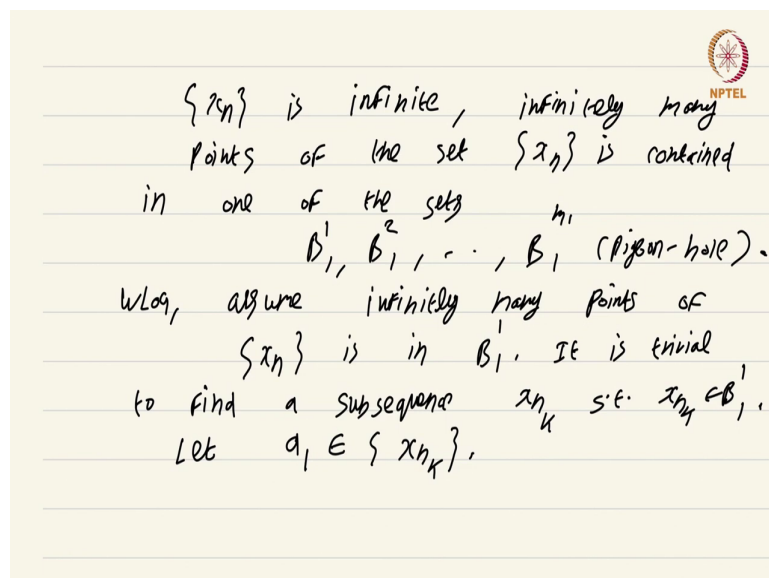 NPTEL
{xₙ} is infinite, infinitely many
points of the set {xₙ} is contained
in one of the sets
B₁¹, B₁², . . ., B₁ⁿ¹ (pigeon-hole).
WLOG, assume infinitely many points of
{xₙ} is in B₁¹. It is trivial
to find a subsequence xₙₖ s.t. xₙₖ ∈ B₁¹.
Let a₁ ∈ {xₙₖ}.